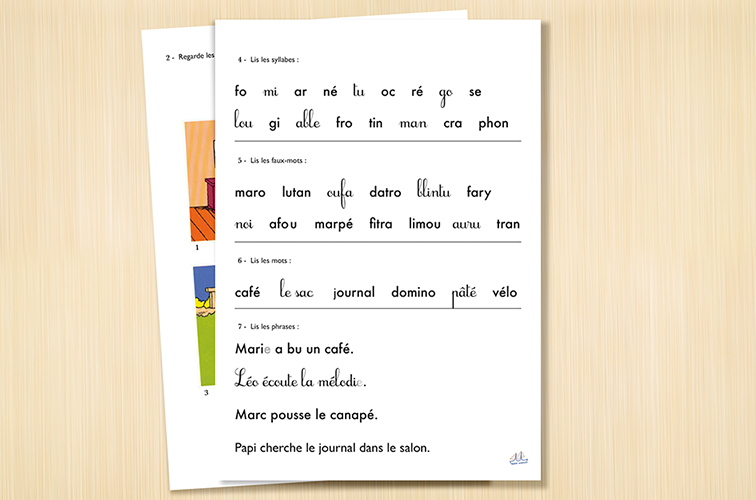 2 - Regarde les
1
3
4 - Lis les syllabes :
fo mi ar né tu oc ré go se
lou gi able fro tin man cra phon
5 - Lis les faux-mots :
maro lutan oufa datro blintu fary
noi afou marpé fitra limou auru tran
6 - Lis les mots :
café le sac journal domino pâté vélo
7 - Lis les phrases :
Marie a bu un café.
Léo écoute la mélodie.
Marc pousse le canapé.
Papi cherche le journal dans le salon.